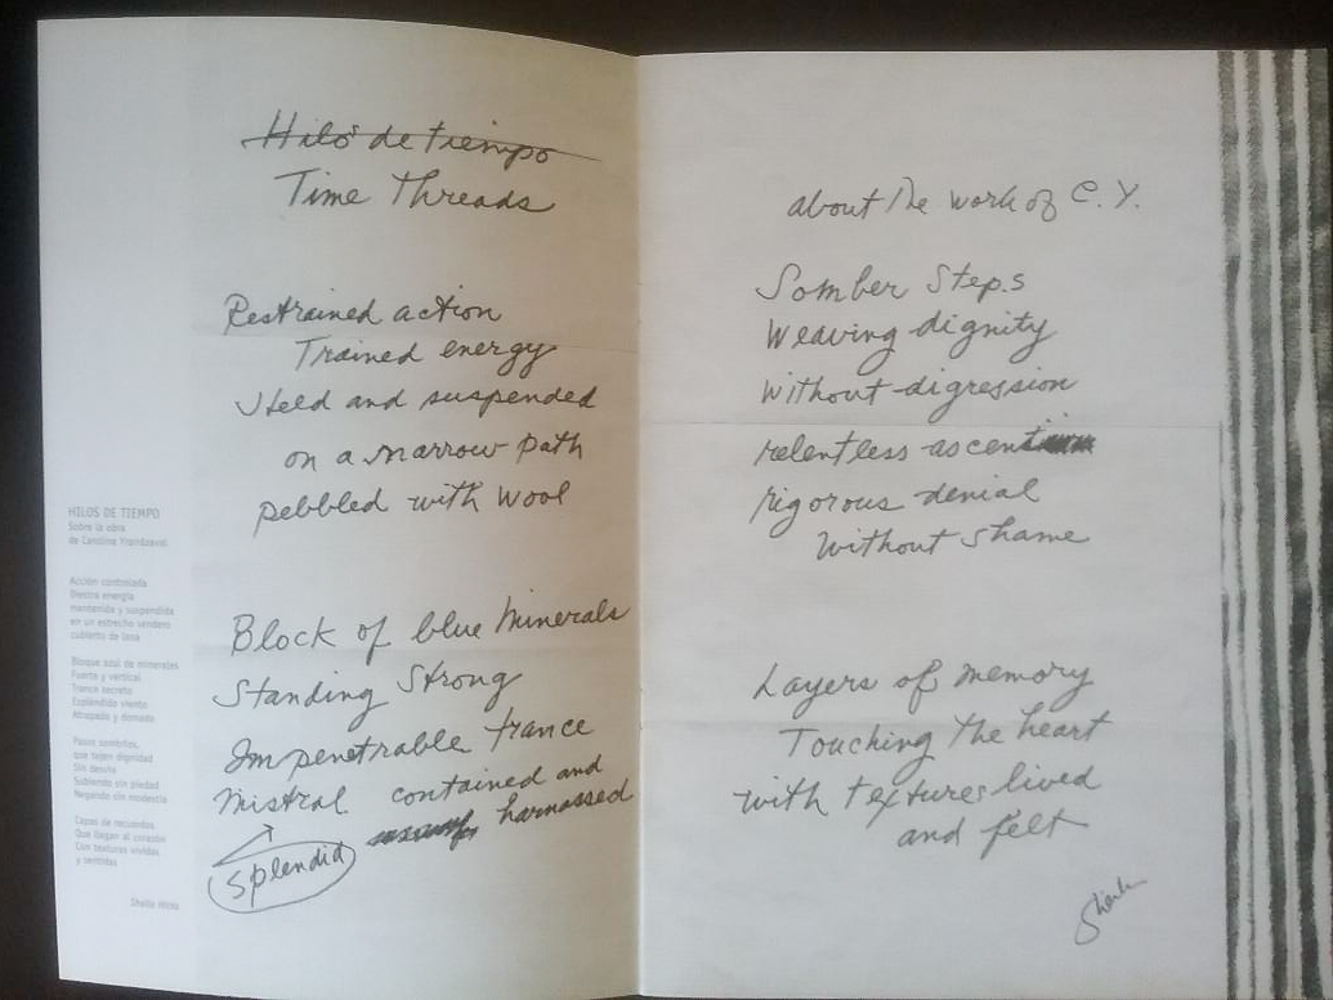 Hilos de tiempo
Time Threads
Restrained action
Trained energy
Held and suspended
on a narrow path
pebbled with wool
Block of blue Minerals
Standing Strong
Impenetrable trance
Mistral contained and
harnassed
splendid
HILOS DE TIEMPO
Sobre la obra
de Caroline Yrarrázaval
Acción controlada
Diestra energía
mantenida y suspendida
en un estrecho sendero
cubierto de lana
Bloque azul de minerales
Fuerte y vertical
Trance secreto
Esplendido viento
Atrapado y domado
Pasos sombríos,
que tejen dignidad
Sin desvío
Subiendo sin piedad
Negando sin modestia
Capas de recuerdos
Que llegan al corazón
Con texturas vividas
y sentidas
Sheila Hicks
about the work of C. Y.
Somber Steps
Weaving dignity
Without digression
relentless ascent
rigorous denial
Without shame
Layers of memory
Touching the heart
with textures lived
and felt
Sheila